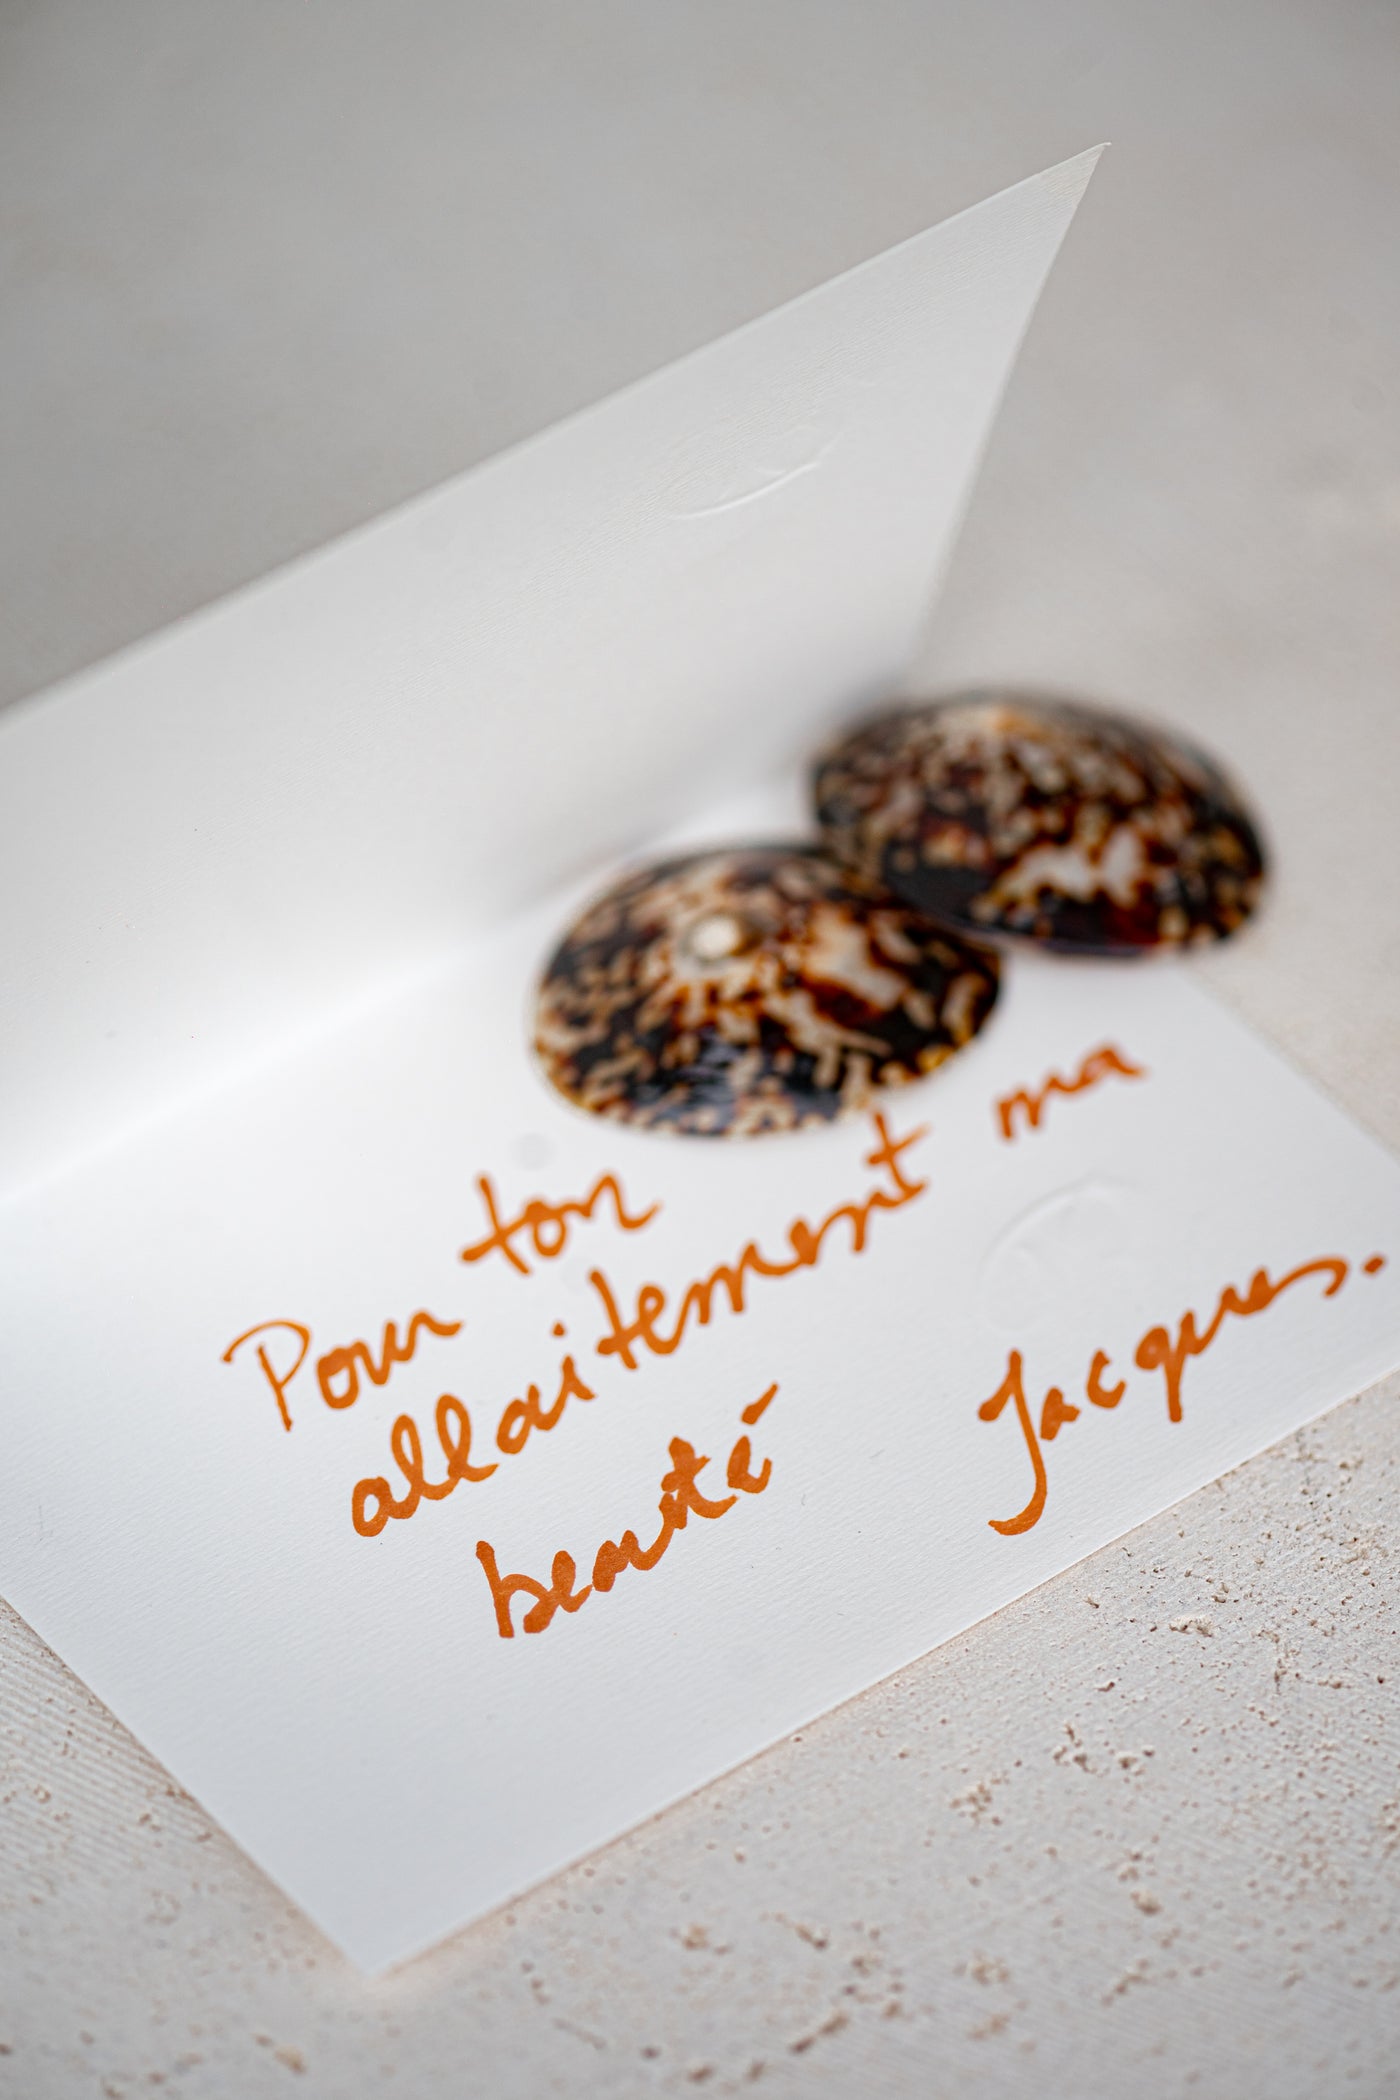 Pour ton
allaitement ma
beauté
Jacques.